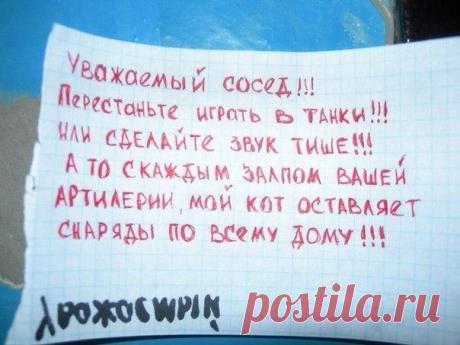 Уважаемый сосед!!!
Перестаньте играть в танки!!!
Или сделайте звук тише!!!
А то с каждым залпом вашей
артилерии, мой кот оставляет
снаряды по всему дому!!!
postila.ru